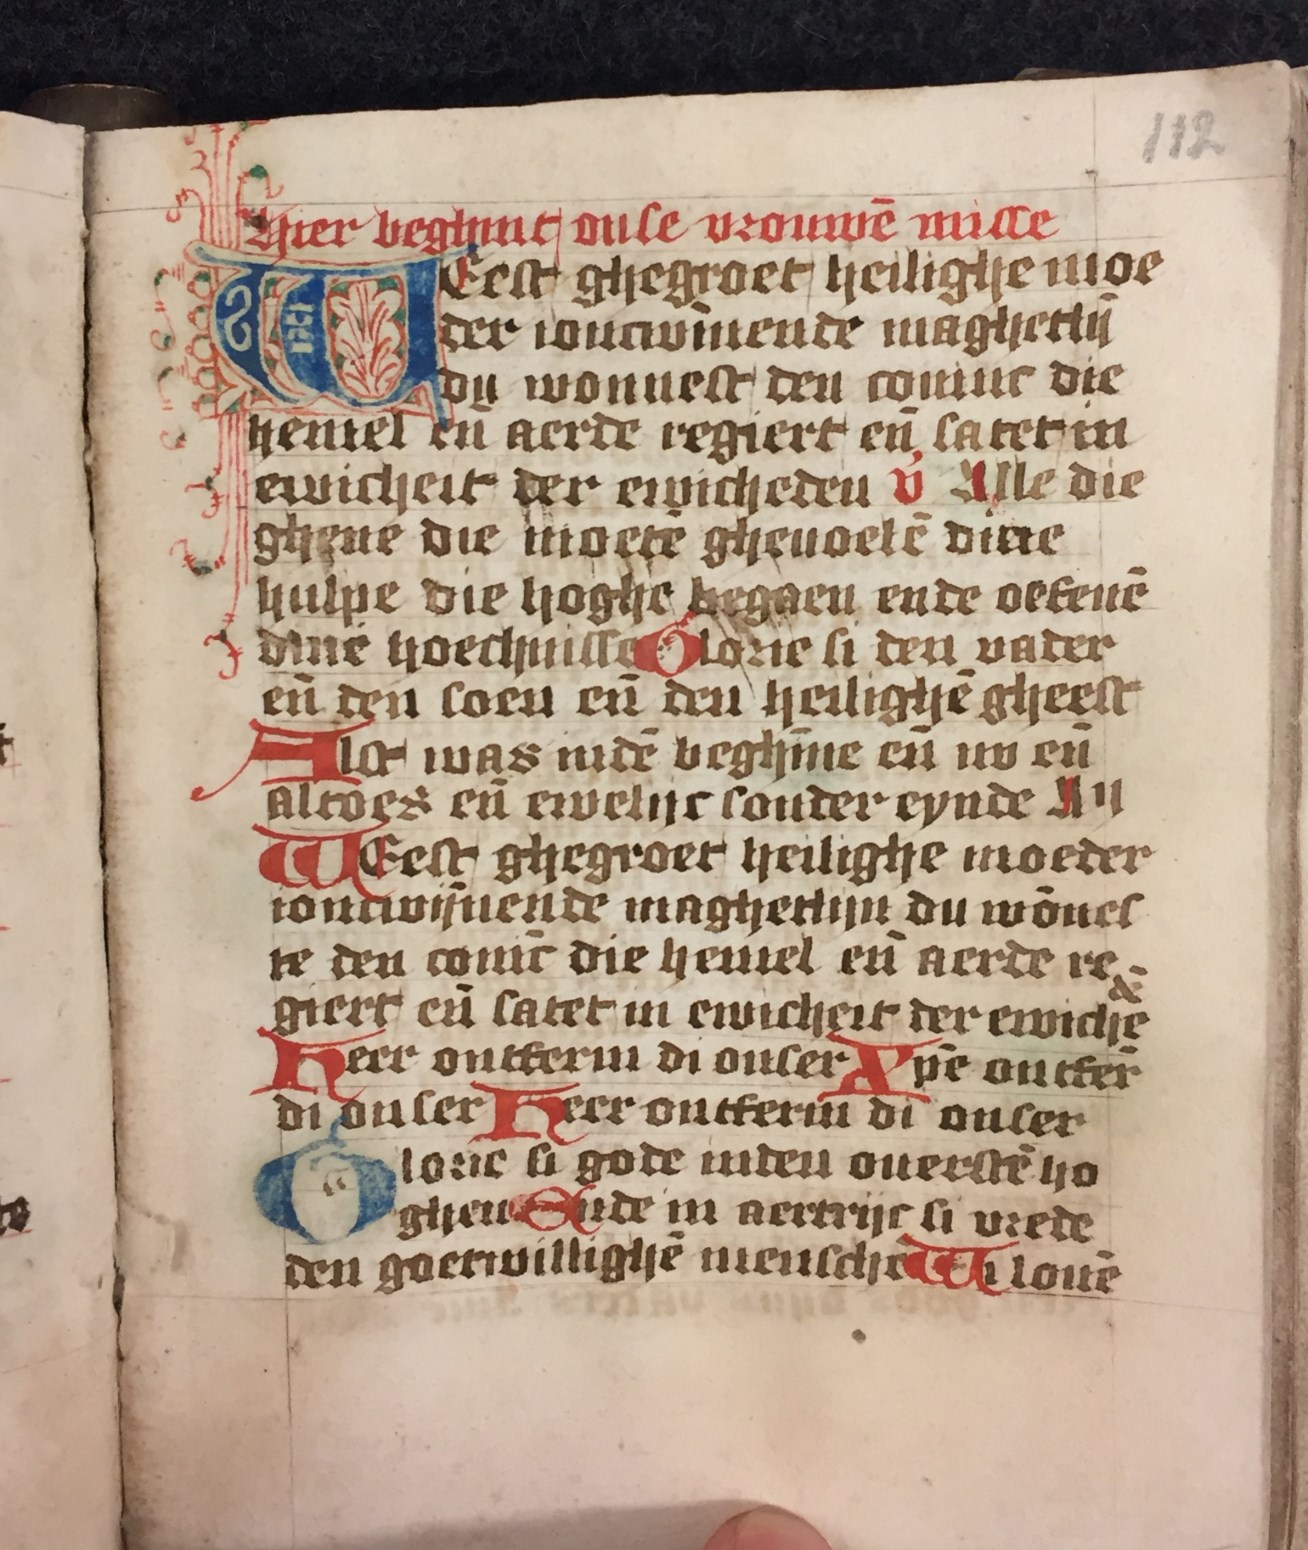 112
Hier beghint onse vrouwē misse
WEest ghegroet heilighe moe
der ioncwīnende maghetlij̄
du wonnest den coninc die
hemel en̄ aerde regiert en̄ satet in
ewicheit der ewicheden v̄ Alle die
ghene die moetē ghevoelē dine
hulpe die hoghe begaen ende oefenē
dinē hoechnisse Glorie si den vader
en̄ den soen en̄ den heilighē gheest
Alst was indē beghīne en̄ nv en̄
altoes en̄ ewelijc sonder eynde An
WEest ghegroet heilighe moeder
ioncwij̄nende maghetlijn du wōnes
te den conīc die hemel en̄ aerde re
giert en̄ satet in ewicheit der ewichē &c̄
Heer ontferm di onser Xpē ontfer̄
di onser Heer ontferm di onser
Glorie si gode inden ouerstē ho
ghen Ende in aertrijc si vrede
den goetwillighē menschē Wi louē